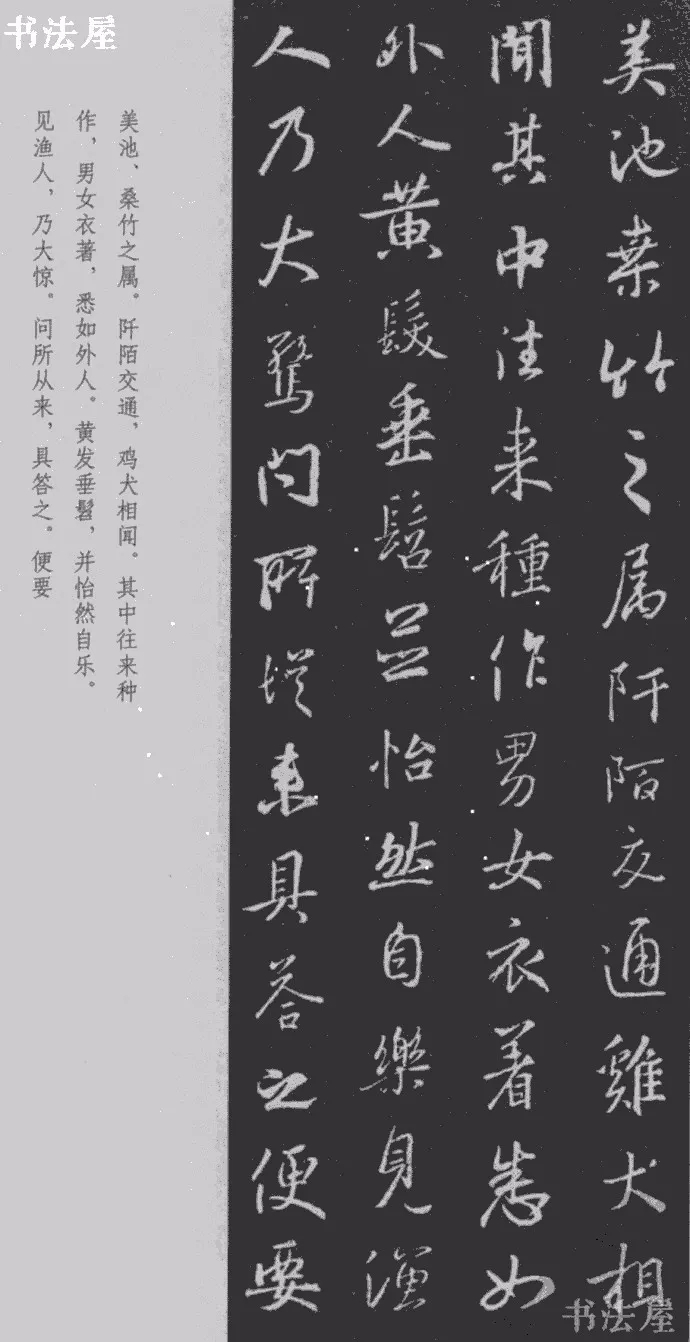 书法屋
美池桒竹之属阡陌交通雞犬相
聞其中往来種作男女衣着悉如
外人黄髮垂髫並怡然自樂見漁
人乃大驚问所従来具荅之便要
美池、桑竹之属。阡陌交通，鸡犬相闻。其中往来种
作，男女衣著，悉如外人。黄发垂髫，并怡然自乐。
见渔人，乃大惊。问所从来，具答之。便要
书法屋